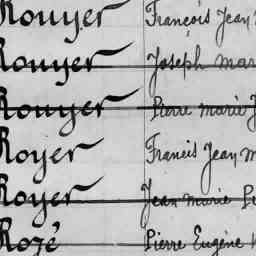 Rouyer François Jean
Rouyer Joseph Mar
Rouyer Pierre Marie J
Royer Francis Jean M
Royer Jean Marie Pi
Rozé Pierre Eugène